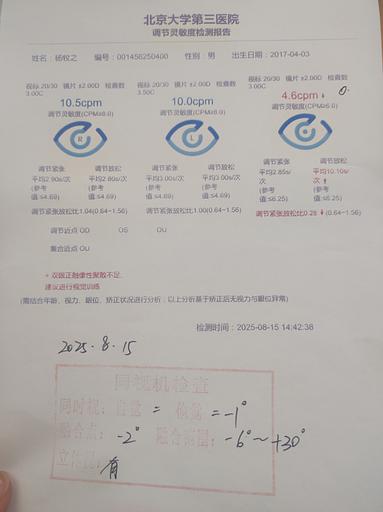 北京大学第三医院
调节灵敏度检测报告
姓名：杨牧之 编号：001456250400 性别：男 出生日期：2017-04-03
视标 20/30 镜片 ±2.00D 检查数 视标 20/30 镜片 ±2.00D 检查数 视标 20/30 镜片 ±2.00D 检查数
3.00C 3.50C 3.00C
10.5cpm 10.0cpm 4.6cpm↓ 0.
调节灵敏度(CPM≥8.0) 调节灵敏度(CPM≥8.0) 调节灵敏度(CPM≥5.0)
R L
调节紧张 调节放松 调节紧张 调节放松 调节紧张 调节放松
平均2.90s/次 平均2.80s/次 平均3.00s/次 平均3.00s/次 平均2.85s/次 平均10.10s/次↑
(参考 (参考 (参考 (参考 (参考 (参考
值:≤4.69) 值:≤4.69) 值:≤4.69) 值:≤4.69) 值:≤6.25) 值:≤6.25)
调节紧张放松比1.04(0.64~1.56) 调节紧张放松比1.00(0.64~1.56) 调节紧张放松比0.28↓(0.64~1.56)
调节近点 OD OS OU
集合近点 OU
+ 双眼正融像性聚散不足,
建议进行视觉训练
(需结合年龄、视力、眼位、矫正状况进行分析；以上分析基于矫正后无视力与眼位异常)
检测时间：2025-08-15 14:42:38
2025.8.15
同视机检查
同时视：自觉 = 他觉 = -1°
融合点：-2° 融合范围：-6°～+30°
立体视：有